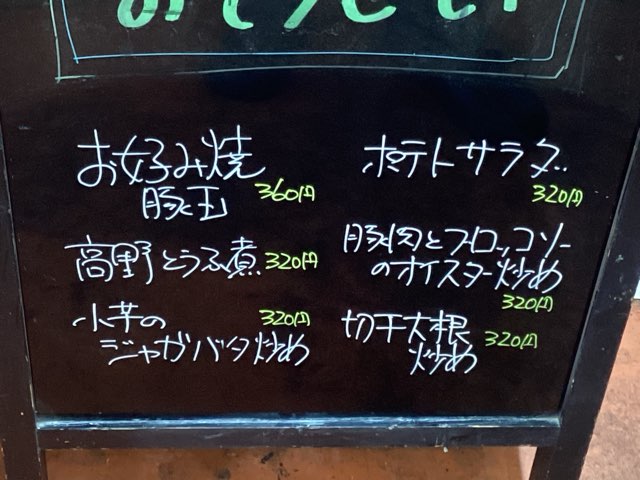 お好み焼
豚玉 360円
高野とうふ煮 320円
小芋の 320円
ジャガバタ炒め
ポテトサラダ
320円
豚肉とブロッコリー
のオイスター炒め
320円
切干大根 320円
炒め